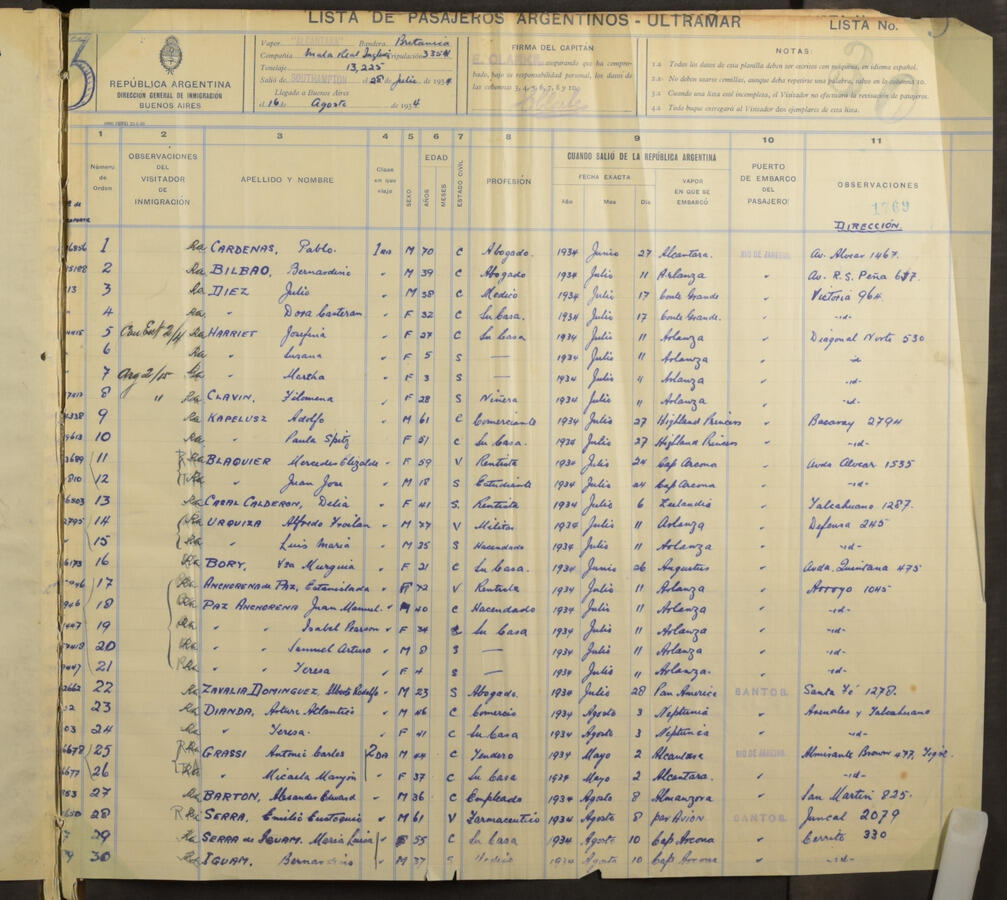 LISTA DE PASAJEROS ARGENTINOS - ULTRAMAR
LISTA No.
3
REPÚBLICA ARGENTINA
DIRECCIÓN GENERAL DE INMIGRACIÓN
BUENOS AIRES
Vapor "ALCANTARA" Bandera Britania
Compañía Mala Real Inglesa Tripulación 335
Tonelaje 13,225
Salió de SOUTHAMPTON el 28 de Julio de 1934
Llegado a Buenos Aires
el 16 de Agosto de 1934
FIRMA DEL CAPITÁN
asegurando que ha comprobado, bajo su responsabilidad personal, los datos de las columnas 3, 4, 5, 6, 7, 8 y 10.
NOTAS:
1.a Todos los datos de esta planilla deben ser escritos con máquina, en idioma español.
2.a No deben usarse comillas, aunque deba repetirse una palabra, salvo en columna 10.
3.a Cuando una lista esté incompleta, el Visitador no efectuará la revisación de pasajeros.
4.a Todo buque entregará al Visitador dos ejemplares de esta lista.
1 2 3 4 5 6 7 8 9 10 11
Número de Orden
OBSERVACIONES DEL VISITADOR DE INMIGRACIÓN
APELLIDO Y NOMBRE
Clase en que viaja
SEXO
EDAD
AÑOS
MESES
ESTADO CIVIL
PROFESIÓN
CUANDO SALIÓ DE LA REPÚBLICA ARGENTINA
FECHA EXACTA
Año Mes Día
VAPOR EN QUE SE EMBARCÓ
PUERTO DE EMBARCO DEL PASAJERO
OBSERVACIONES
1769
DIRECCIÓN.
1 CARDENAS, Pablo. 1ra M 70 C Abogado. 1934 Junio 27 Alcantara. RIO DE JANEIRO. Av. Alvear 1467.
2 BILBAO, Bernardino " M 39 C Abogado 1934 Julio 11 Arlanza " Av. R.S. Peña 617.
3 DIEZ Julio " M 38 C Medico 1934 Julio 17 Conte Grande " Victoria 964.
4 " Dora Canteran " F 32 C Su Casa. 1934 Julio 17 Conte Grande. " -id-
5 HARRIET Josefina " F 27 C Su Casa 1934 Julio 11 Arlanza " Diagonal Norte 530
6 " Susana " F 5 S — 1934 Julio 11 Arlanza " -id-
7 Arg 2/15 " Martha " F 3 S — 1934 Julio 11 Arlanza " -id-
8 " CLAVIN, Filomena " F 28 S Niñera 1934 Julio 11 Arlanza " -id-
9 KAPELUSZ Adolfo " M 61 C Comerciante 1934 Julio 27 Highland Princess " Bacacay 2794
10 " Paula Spitz " F 51 C Su Casa. 1934 Julio 27 Highland Princess " -id-
11 BLAQUIER Mercedes Elizalde " F 59 V Rentista 1934 Julio 24 Cap Arcona " Avda Alvear 1535
12 " Juan Jose " M 18 S Estudiante 1934 Julio 24 Cap Arcona " -id-
13 CASAL CALDERON, Delia " F 41 S. Rentista 1934 Julio 6 Zeelandia " Talcahuano 1287.
14 URQUIZA Alfredo " M 77 V Militar 1934 Julio 11 Arlanza " Defensa 245
15 " Luis Maria " M 35 S Hacendado 1934 Julio 11 Arlanza " -id-
16 BORY, Murguia " F 21 C Su Casa. 1934 Junio 26 Augustus " Avda. Quintana 475
17 ANCHORENA de PAZ, Estanislada " F 72 V Rentista 1934 Julio 11 Arlanza " Arroyo 1045
18 PAZ ANCHORENA Juan Manuel " M 40 C Hacendado 1934 Julio 11 Arlanza " -id-
19 " " Isabel Pearson " F 34 C Su Casa 1934 Julio 11 Arlanza " -id-
20 " " Samuel Arturo " M 8 S — 1934 Julio 11 Arlanza " -id-
21 " " Teresa " F 4 S — 1934 Julio 11 Arlanza. " -id-
22 ZAVALIA DOMINGUEZ, Alberto Rodolfo " M 23 S Abogado. 1934 Julio 28 Pan America SANTOS. Santa Fé 1278.
23 DIANDA, Arturo Atlantico " M 46 C Comercio 1934 Agosto 3 Neptunia " Arenales y Talcahuano
24 " Teresa. " F 41 C Su Casa 1934 Agosto 3 Neptunia " -id-
25 GRASSI Antonio Carlos 2DA M 44 C Tendero 1934 Mayo 2 Alcantara RIO DE JANEIRO. Almirante Brown 477,
26 " Micaela " F 37 C Su Casa 1934 Mayo 2 Alcantara. " -id-
27 BARTON, Alexander Edward " M 36 C Empleado 1934 Agosto 8 Almanzora " San Martin 825.
28 SERRA, Emilio Eustoquio " M 61 V Farmaceutico 1934 Agosto 8 por AVION SANTOS. Juncal 2079
29 SERRA de IGUAM. Maria Luisa " F 55 C Su Casa 1934 Agosto 10 Cap Arcona " Cerrito 330
30 IGUAM, Bernardino " M 37 S Medico 1934 Agosto 10 Cap Arcona " -id-